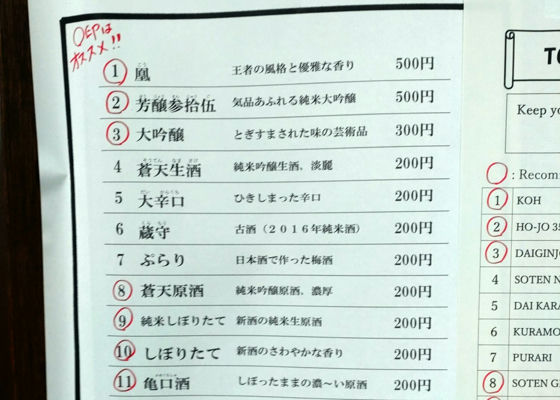 ○印は
オススメ!!
1 凰 王者の風格と優雅な香り 500円
2 芳醸参拾伍 気品あふれる純米大吟醸 500円
3 大吟醸 とぎすまされた味の芸術品 300円
4 蒼天生酒 純米吟醸生酒、淡麗 200円
5 大辛口 ひきしまった辛口 200円
6 蔵守 古酒(2016年純米酒) 200円
7 ぷらり 日本酒で作った梅酒 200円
8 蒼天原酒 純米吟醸原酒、濃厚 200円
9 純米しぼりたて 新酒の純米生原酒 200円
10 しぼりたて 新酒のさわやかな香り 200円
11 亀口酒 しぼったままの濃~い原酒 200円
Keep yo
○: Recom
1 KOH
2 HO-JO 35
3 DAIGINJ
4 SOTEN N
5 DAI KARA
6 KURAMO
7 PURARI
8 SOTEN G